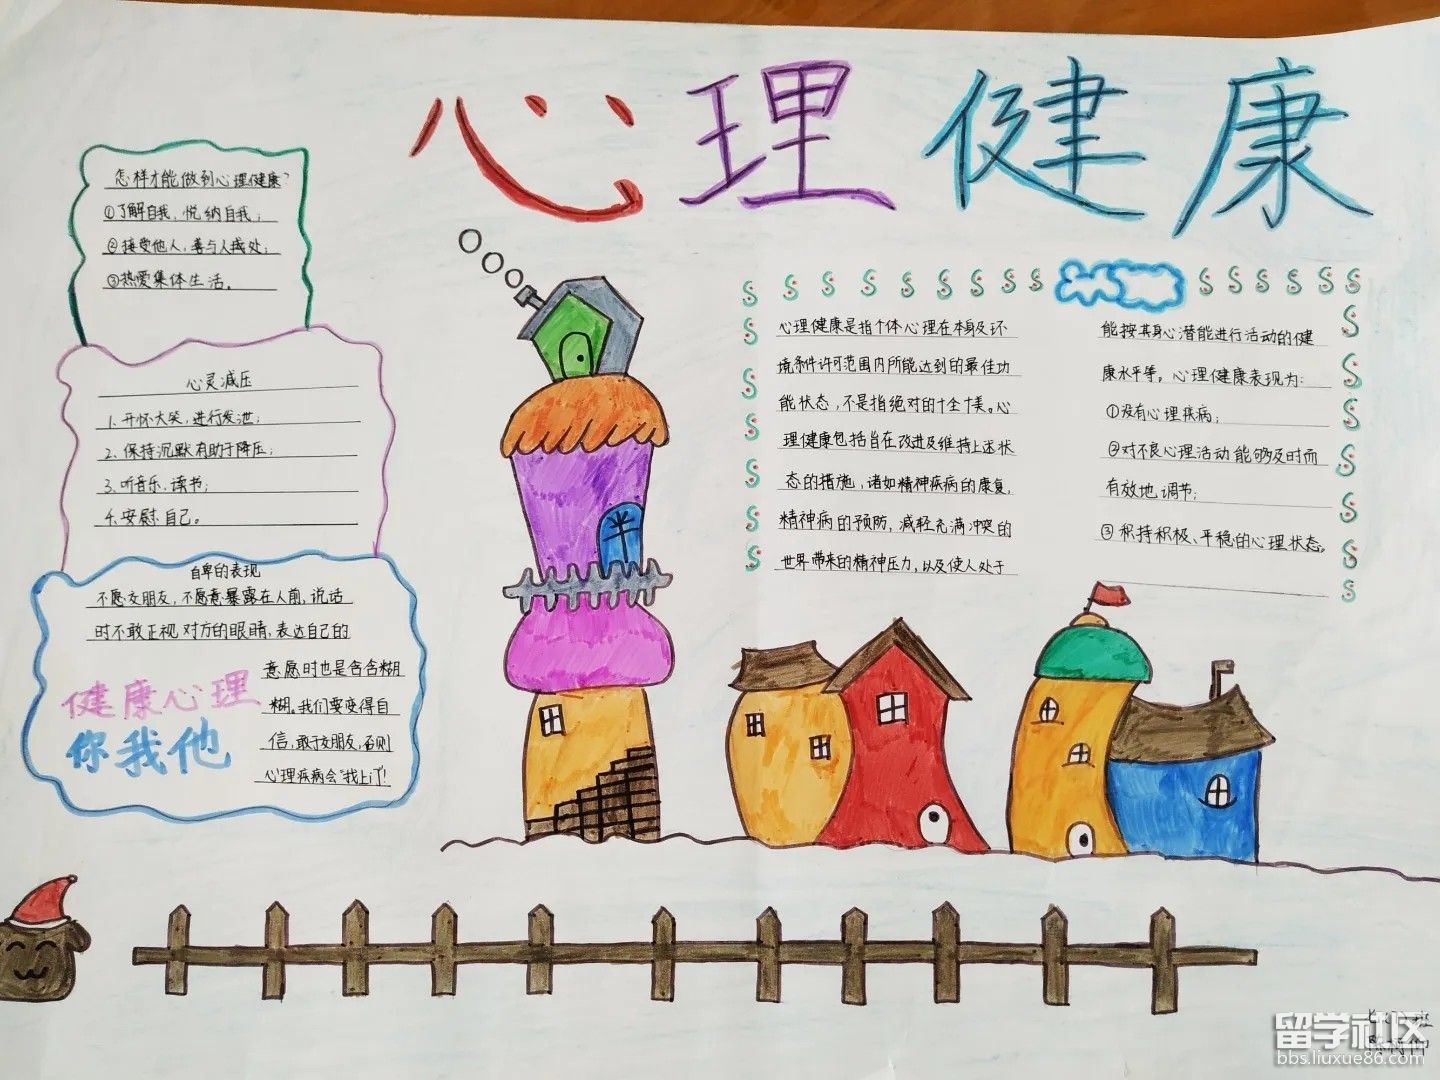 心理健康
怎样才能做到心理健康?
①了解自我、悦纳自我;
②接受他人,善与人相处;
③热爱集体生活。
心灵减压
1、开怀大笑,进行发泄;
2、保持沉默有助于降压;
3、听音乐、读书;
4、安慰自己。
自卑的表现
不愿交朋友,不愿意暴露在人前,说话
时不敢正视对方的眼睛,表达自己的
意愿时也是含含糊
糊。我们要变得自
信,敢于交朋友,否则
心理疾病会“找上门”!
健康心理
你我他
心理健康是指个体心理在本身及环
境条件许可范围内所能达到的最佳功
能状态,不是指绝对的十全十美。心
理健康包括旨在改进及维持上述状
态的措施,诸如精神疾病的康复,
精神病的预防,减轻充满冲突的
世界带来的精神压力,以及使人处于
能按其身心潜能进行活动的健
康水平等。心理健康表现为:
①没有心理疾病;
②对不良心理活动能够及时而
有效地调节;
③积持积极、平稳的心理状态。
留学社区
bbs.liuxue86.com